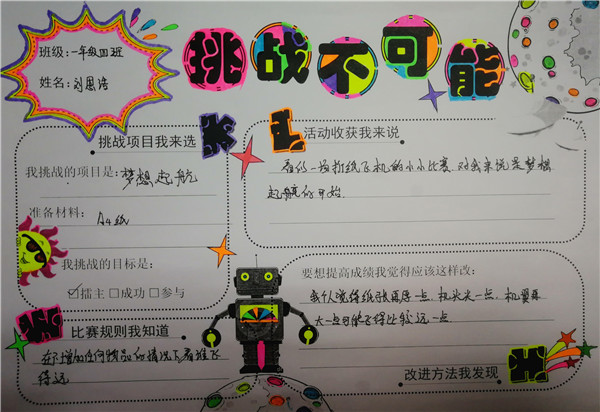 挑战不可能
班级:一年级四班
姓名:刘恩溶
挑战项目我来选
我挑战的项目是:梦想起航
准备材料:A4纸
我挑战的目标是:
☑擂主 □成功 □参与
比赛规则我知道
在不增加任何物品的情况下看谁飞
得远
活动收获我来说
看似一场折纸飞机的小小比赛.对我来说是梦想
起航的开始.
要想提高成绩我觉得应该这样改:
我认为得纸张再厚一点.机头尖一点.机翼再
大一点可能飞得比较远一点
改进方法我发现